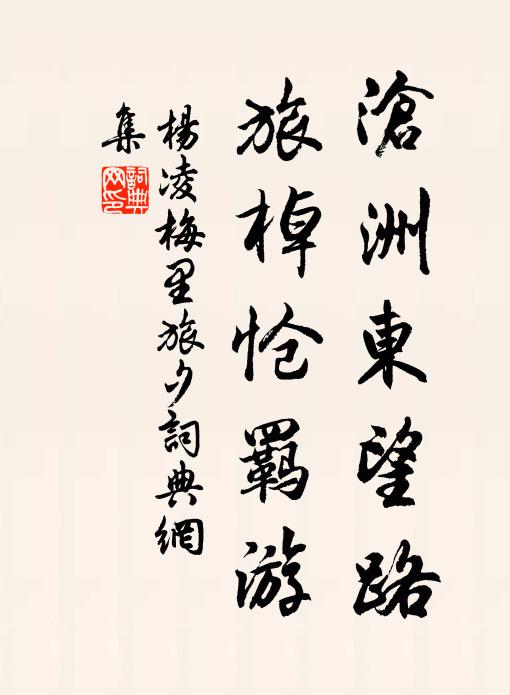 滄洲東望路
旅棹怆羁游
楊凌梅里旅夕詞典網
集
詞典网印